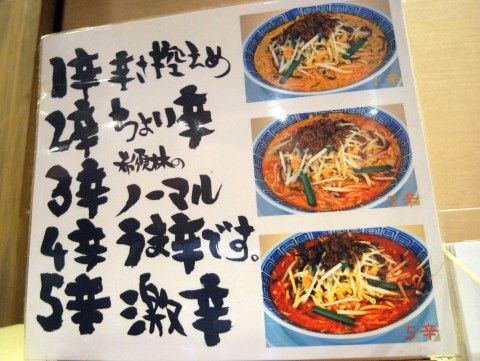 1辛 辛さ控えめ
2辛 ちょい辛
3辛 希須林の
ノーマル
4辛 うま辛です。
5辛 激辛
3辛
5辛